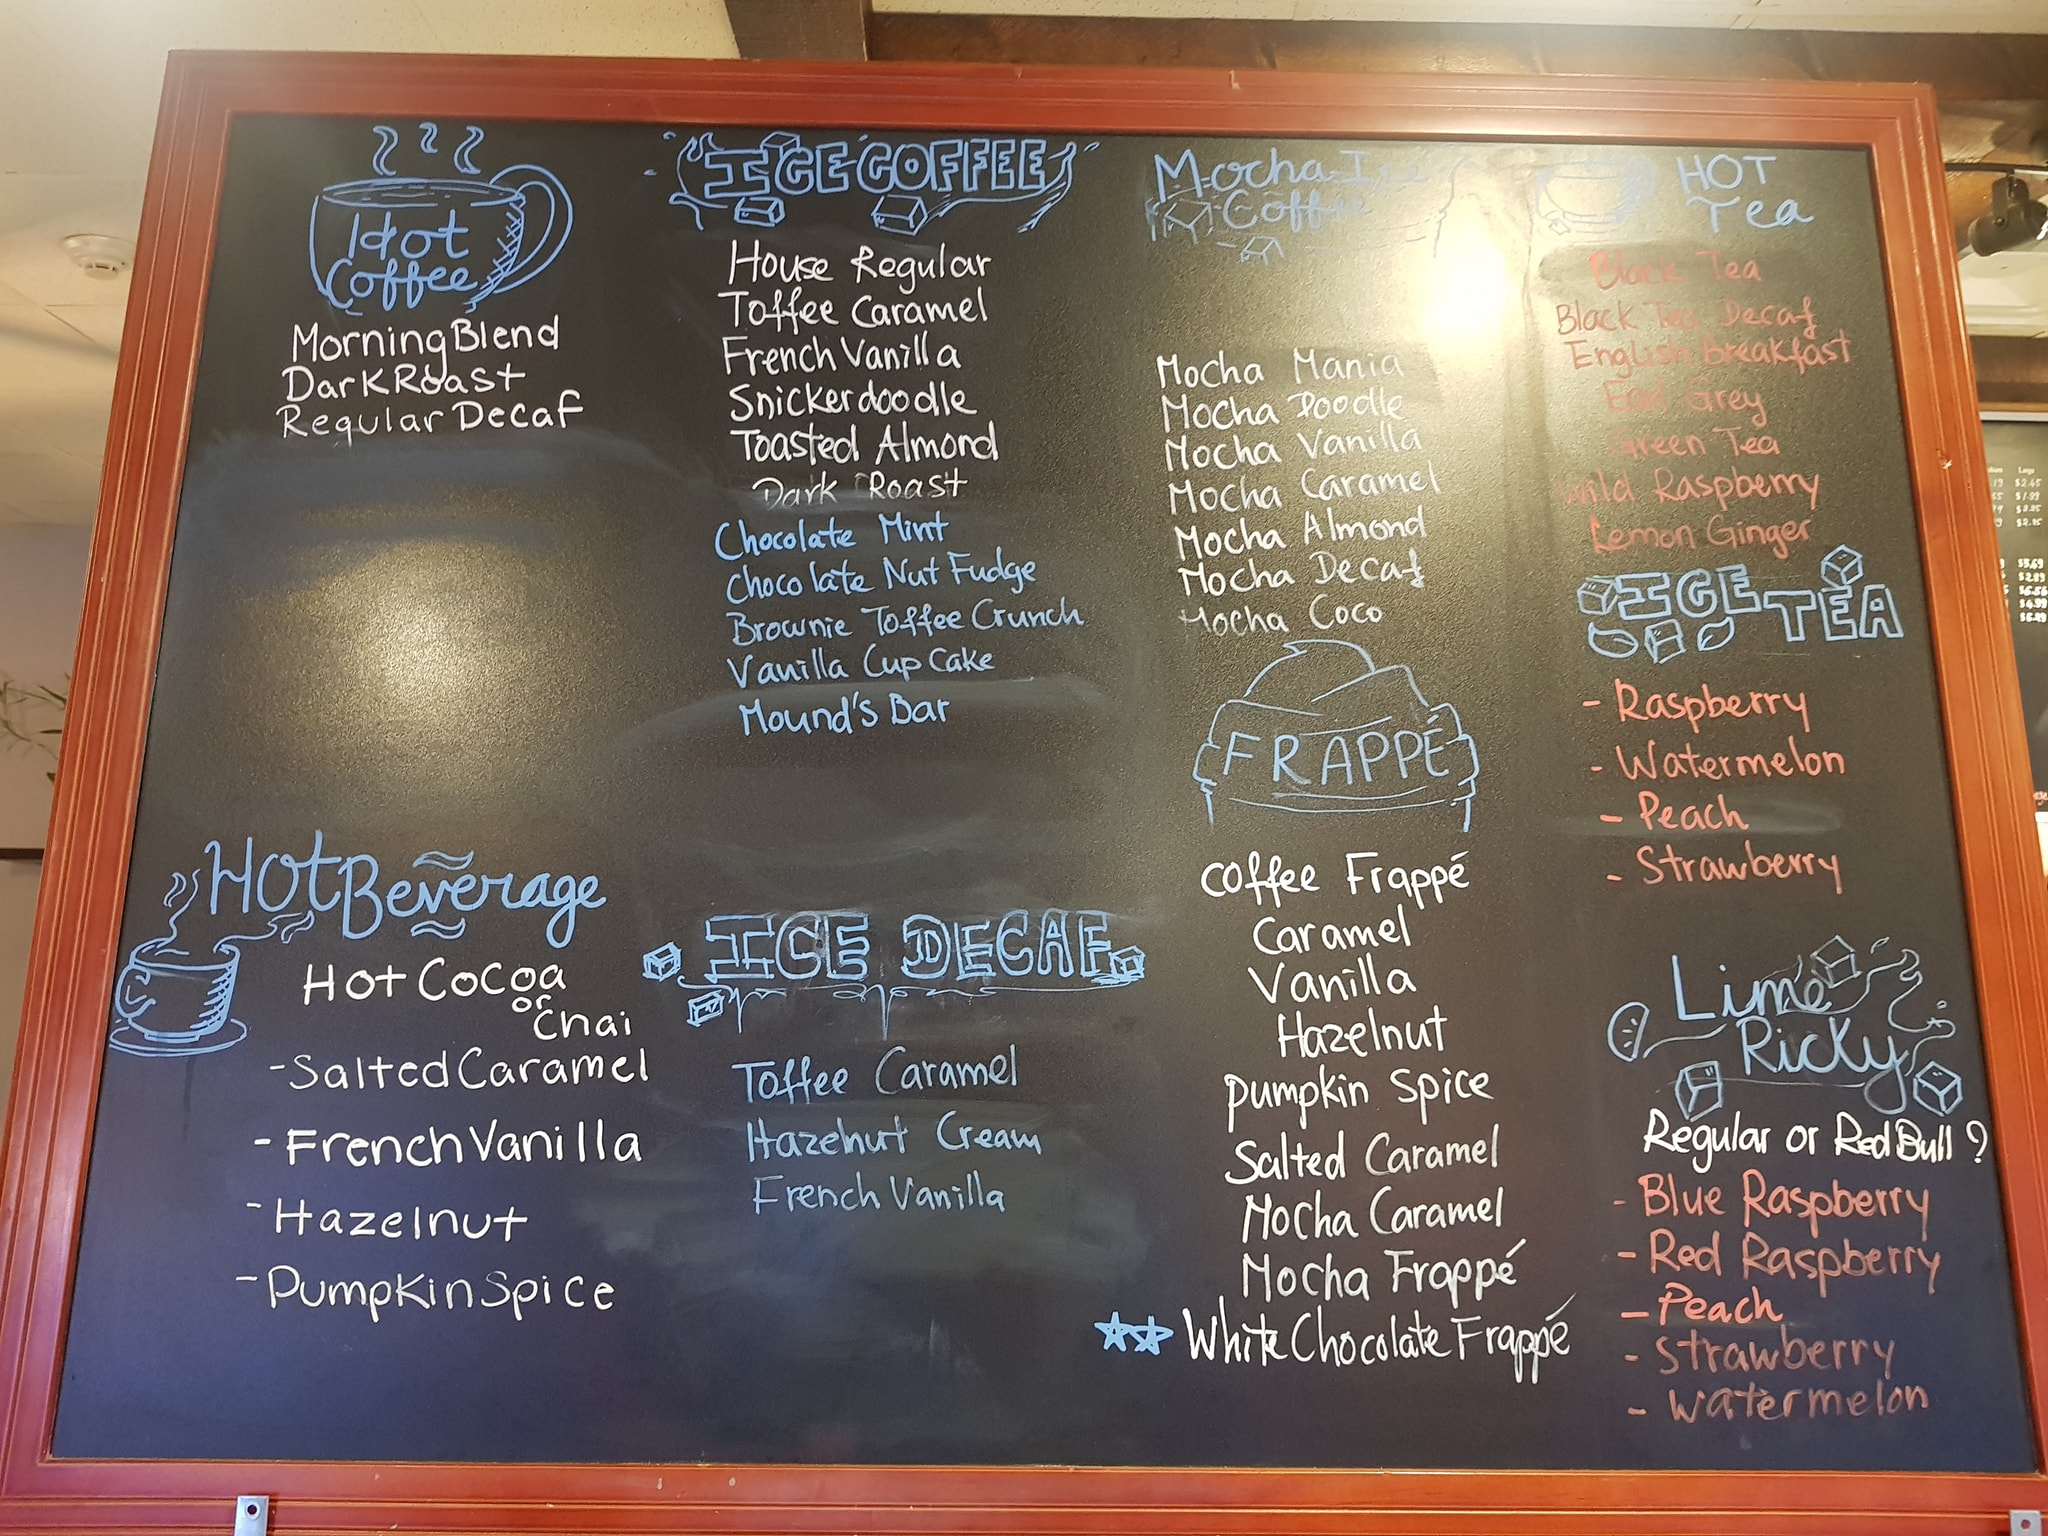 Hot
Coffee
Morning Blend
Dark Roast
Regular Decaf
Hot Beverage
Hot Cocoa
or
Chai
- Salted Caramel
- French Vanilla
- Hazelnut
- Pumpkin Spice
ICE COFFEE
House Regular
Toffee Caramel
French Vanilla
Snickerdoodle
Toasted Almond
Dark Roast
Chocolate Mint
Chocolate Nut Fudge
Brownie Toffee Crunch
Vanilla Cup Cake
Mound's Bar
ICE DECAF
Toffee Caramel
Hazelnut Cream
French Vanilla
Mocha Ice
Coffee
Mocha Mania
Mocha Doodle
Mocha Vanilla
Mocha Caramel
Mocha Almond
Mocha Decaf
Mocha Coco
FRAPPÉ
Coffee Frappé
Caramel
Vanilla
Hazelnut
Pumpkin Spice
Salted Caramel
Mocha Caramel
Mocha Frappé
White Chocolate Frappé
HOT
Tea
Black Tea
Black Tea Decaf
English Breakfast
Earl Grey
Green Tea
Wild Raspberry
Lemon Ginger
ICE TEA
- Raspberry
- Watermelon
- Peach
- Strawberry
Lime
Ricky
Regular or Red Bull ?
- Blue Raspberry
- Red Raspberry
- Peach
- Strawberry
- Watermelon
Large
$2.45